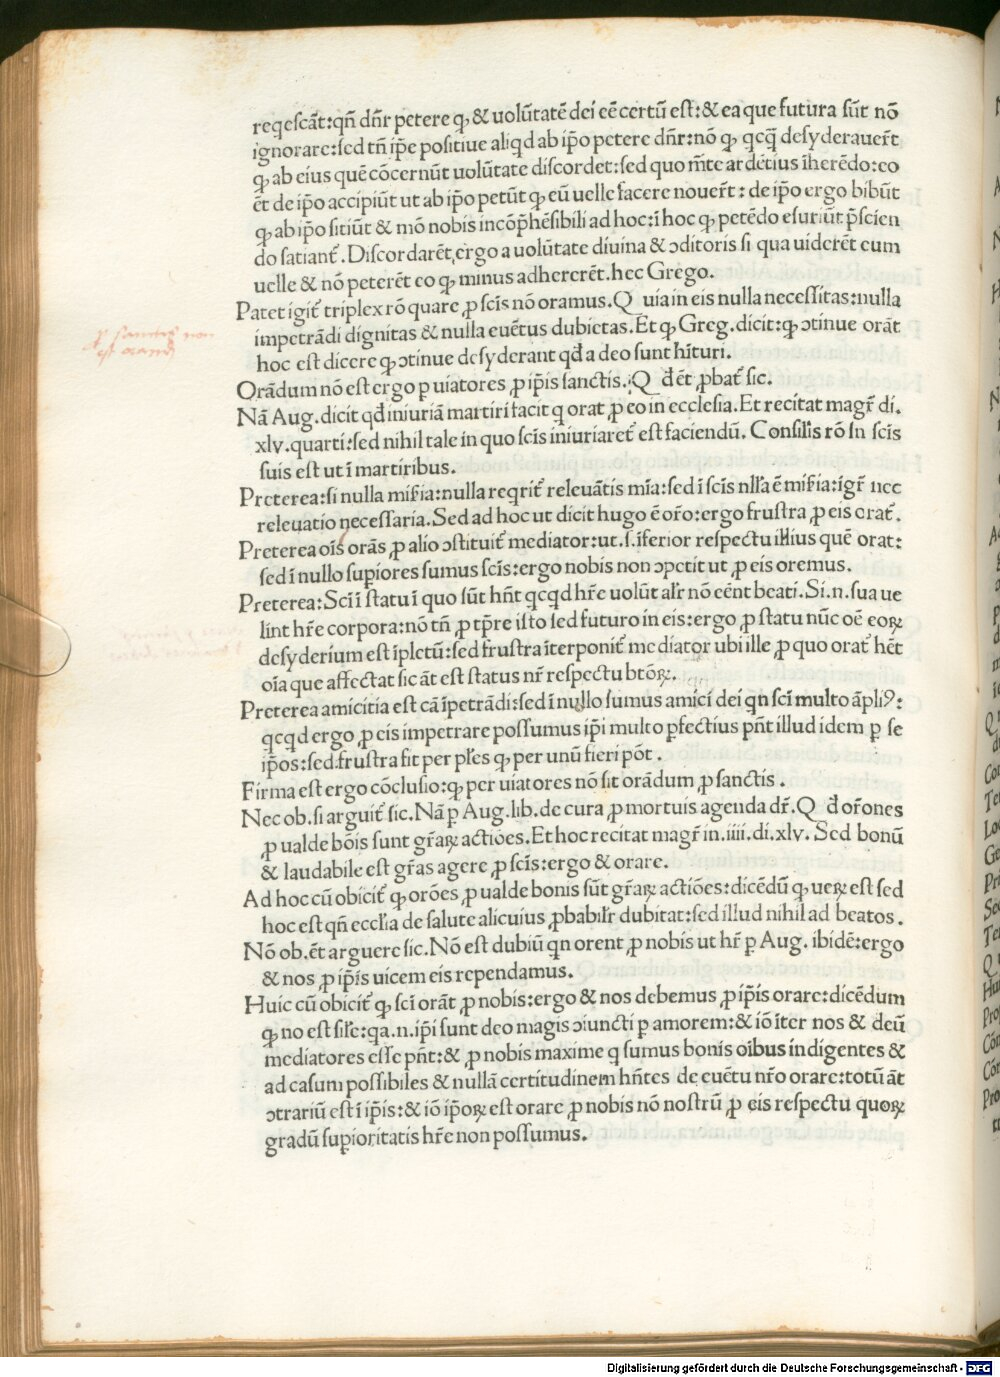 reqescāt:qn̄ dn̄r petere ꝙ & uolūtatē dei eē certū est:& ea que futura sūt nō
ignorare:sed tn̄ ip̄e positiue aliqd ab ip̄o petere dn̄r:nō ꝙ qcq̄ desyderauer̄t
ꝙ ab eius quē cōcernūt uolūtate discordet:sed quo m̄te ardētius īherēdo:eo
ēt de ip̄o accipiūt ut ab ip̄o petūt ꝙ eū uelle facere nouer̄t: de ip̄o ergo bibūt
ꝙ ab ip̄o sitiūt & mō nobis incōp̄hēsibili ad hoc:ī hoc ꝙ petēdo esuriūt p̄scien
do satiant̄. Discordarēt ergo a uolūtate diuina & ꝯditoris si qua uiderēt eum
uelle & nō peterēt eo ꝙ minus adhererēt.hec Grego.
Patet igit̄ triplex rō quare ꝓ scīs nō oramus.Q uia in eis nulla necessitas:nulla
impetrādi dignitas & nulla euētus dubietas.Et ꝙ Greg.dicit:ꝙ ꝯtinue orāt
hoc est dicere ꝙ ꝯtinue desyderant qd̄ a deo sunt hīturi.
Orādum nō est ergo p uiatores ꝓ ip̄is sanctis.Q d̄ ēt ꝓbat̄ sic.
Nā Aug.dicit qd̄ iniuriā martiri facit q orat ꝓ eo in ecclesia.Et recitat magr̄ di.
xlv.quarti:sed nihil tale in quo scīs iniuriaret̄ est faciendū. Consilis rō in scīs
suis est ut ī martiribus.
Preterea:si nulla mis̄ia:nulla reqrit̄ releuātis mīa:sed ī scīs nlla ē mis̄ia:igr̄ nec
releuatio necessaria.Sed ad hoc ut dicit hugo ē or̄o:ergo frustra ꝓ eis orat̄.
Preterea oīs orās ꝓ alio ꝯstituit̄ mediator:ut.s.īferior respectu illius quē orat:
sed ī nullo supiores sumus scīs:ergo nobis non ꝯpetit ut ꝓ eis oremus.
Preterea:Scī ī statu ī quo sūt hn̄t qcqd hr̄e uolūt alr̄ nō eēnt beati.Si.n.sua ue
lint hr̄e corpora:nō tn̄ ꝓ tp̄re isto sed futuro in eis:ergo ꝓ statu nūc oē eoꝝ
desyderium est īpletū:sed frustra īterponit̄ mediator ubi ille ꝓ quo orat̄ hēt
oīa que affectat sic āt est status nr̄ respectu btōꝝ.
Preterea amicitia est cā īpetrādi:sed ī nullo sumus amici dei qn scī multo āpliꝰ:
qcqd ergo ꝓ eis impetrare possumus ip̄i multo ꝑfectius pn̄t illud idem ꝑ se
ip̄os:sed frustra fit per pl̄es ꝙ per unū fieri pōt.
Firma est ergo cōclusio:ꝙ per uiatores nō sit orādum ꝓ sanctis.
Nec ob.si arguit̄ sic.Nā ꝑ Aug.lib.de cura ꝓ mortuis agenda dr̄.Q d̄ or̄ones
ꝓ ualde bōis sunt gr̄aꝝ actiōes.Et hoc recitat magr̄ in.iiii.di.xlv. Sed bonū
& laudabile est gr̄as agere ꝓ scīs:ergo & orare.
Ad hoc cū obicit̄ ꝙ orōes ꝓ ualde bonis sūt gr̄aꝝ actiōes:dicēdū ꝙ ueꝝ est sed
hoc est qn̄ eccl̄ia de salute alicuius ꝓbabilr̄ dubitat:sed illud nihil ad beatos.
Nō ob.ēt arguere sic.Nō est dubiū qn orent ꝓ nobis ut hr̄ ꝑ Aug. ibidē:ergo
& nos ꝓ ip̄is uicem eis rependamus.
Huic cū obicit̄ ꝙ scī orāt ꝓ nobis:ergo & nos debemus ꝓ ip̄is orare:dicēdum
ꝙ no est sil̄e:qa.n.ip̄i sunt deo magis ꝯiuncti ꝑ amorem:& iō īter nos & deū
mediatores esse pn̄t:& ꝓ nobis maxime q sumus bonis oībus indigentes &
ad casum possibiles & nullā certitudinem hn̄tes de euētu nr̄o orare:totū āt
ꝯtrariū est ī ip̄is:& iō ip̄oꝝ est orare ꝓ nobis nō nostrū ꝓ eis respectu quoꝝ
gradū supioritatis hr̄e non possumus.
ꝓ sanctis non
est orandū
Digitalisierung gefördert durch die Deutsche Forschungsgemeinschaft - DFG